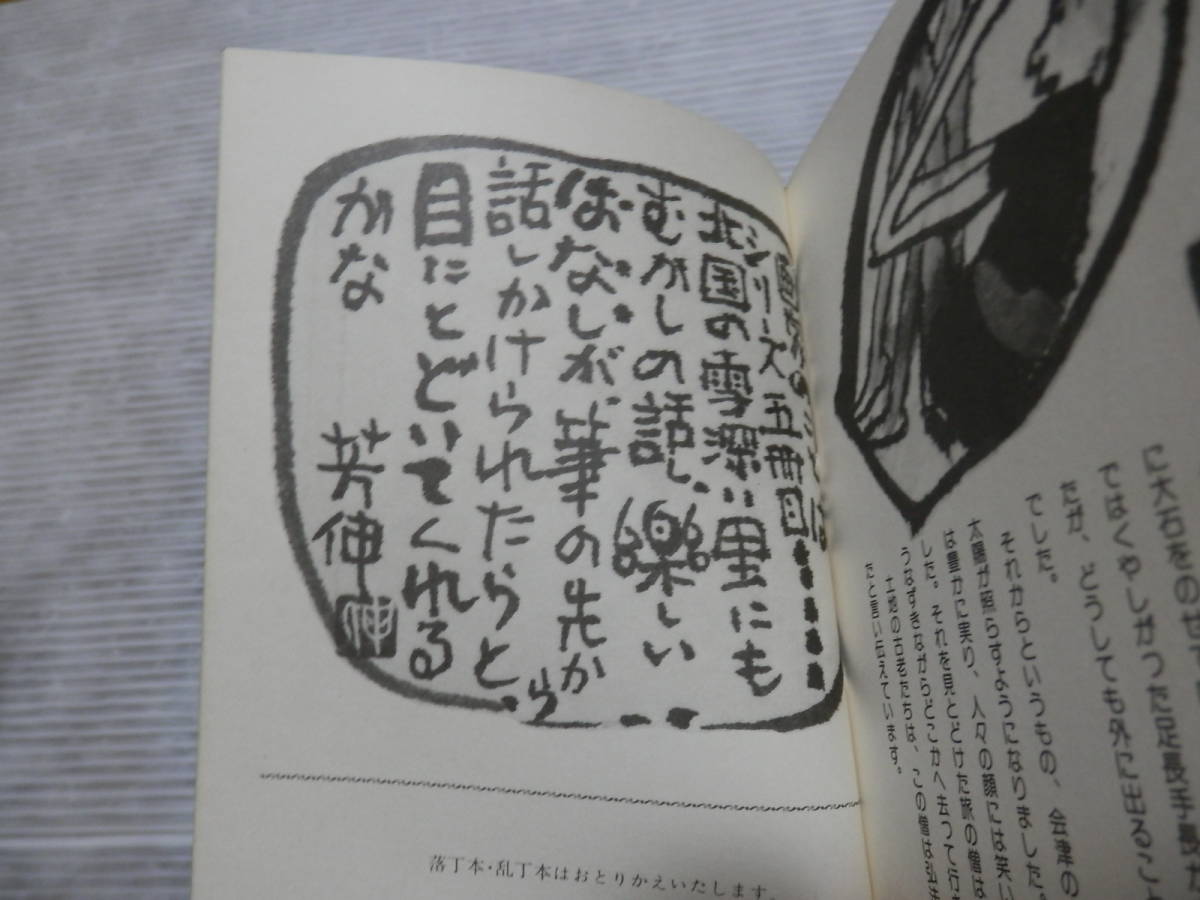 に大石をのせ
ではくやしがった足長手長だ
だが、どうしても外に出るこ
でした。
それからというもの、会津の
太陽が照らすようになりました。
は豊かに実り、人々の顔には笑い
した。それを見とどけた旅の僧は
うなずきながらどこかへ去って行
土地の古老たちは、この僧は
たと言い伝えています。
シリーズ 五冊目
北国の雪深い里にも
むかしの話し、楽しい
おはなしが、筆の先から
話しかけられたらと、
目にとどいてくれる
かな
芳伸
伸
落丁本・乱丁本はおとりかえいたします。